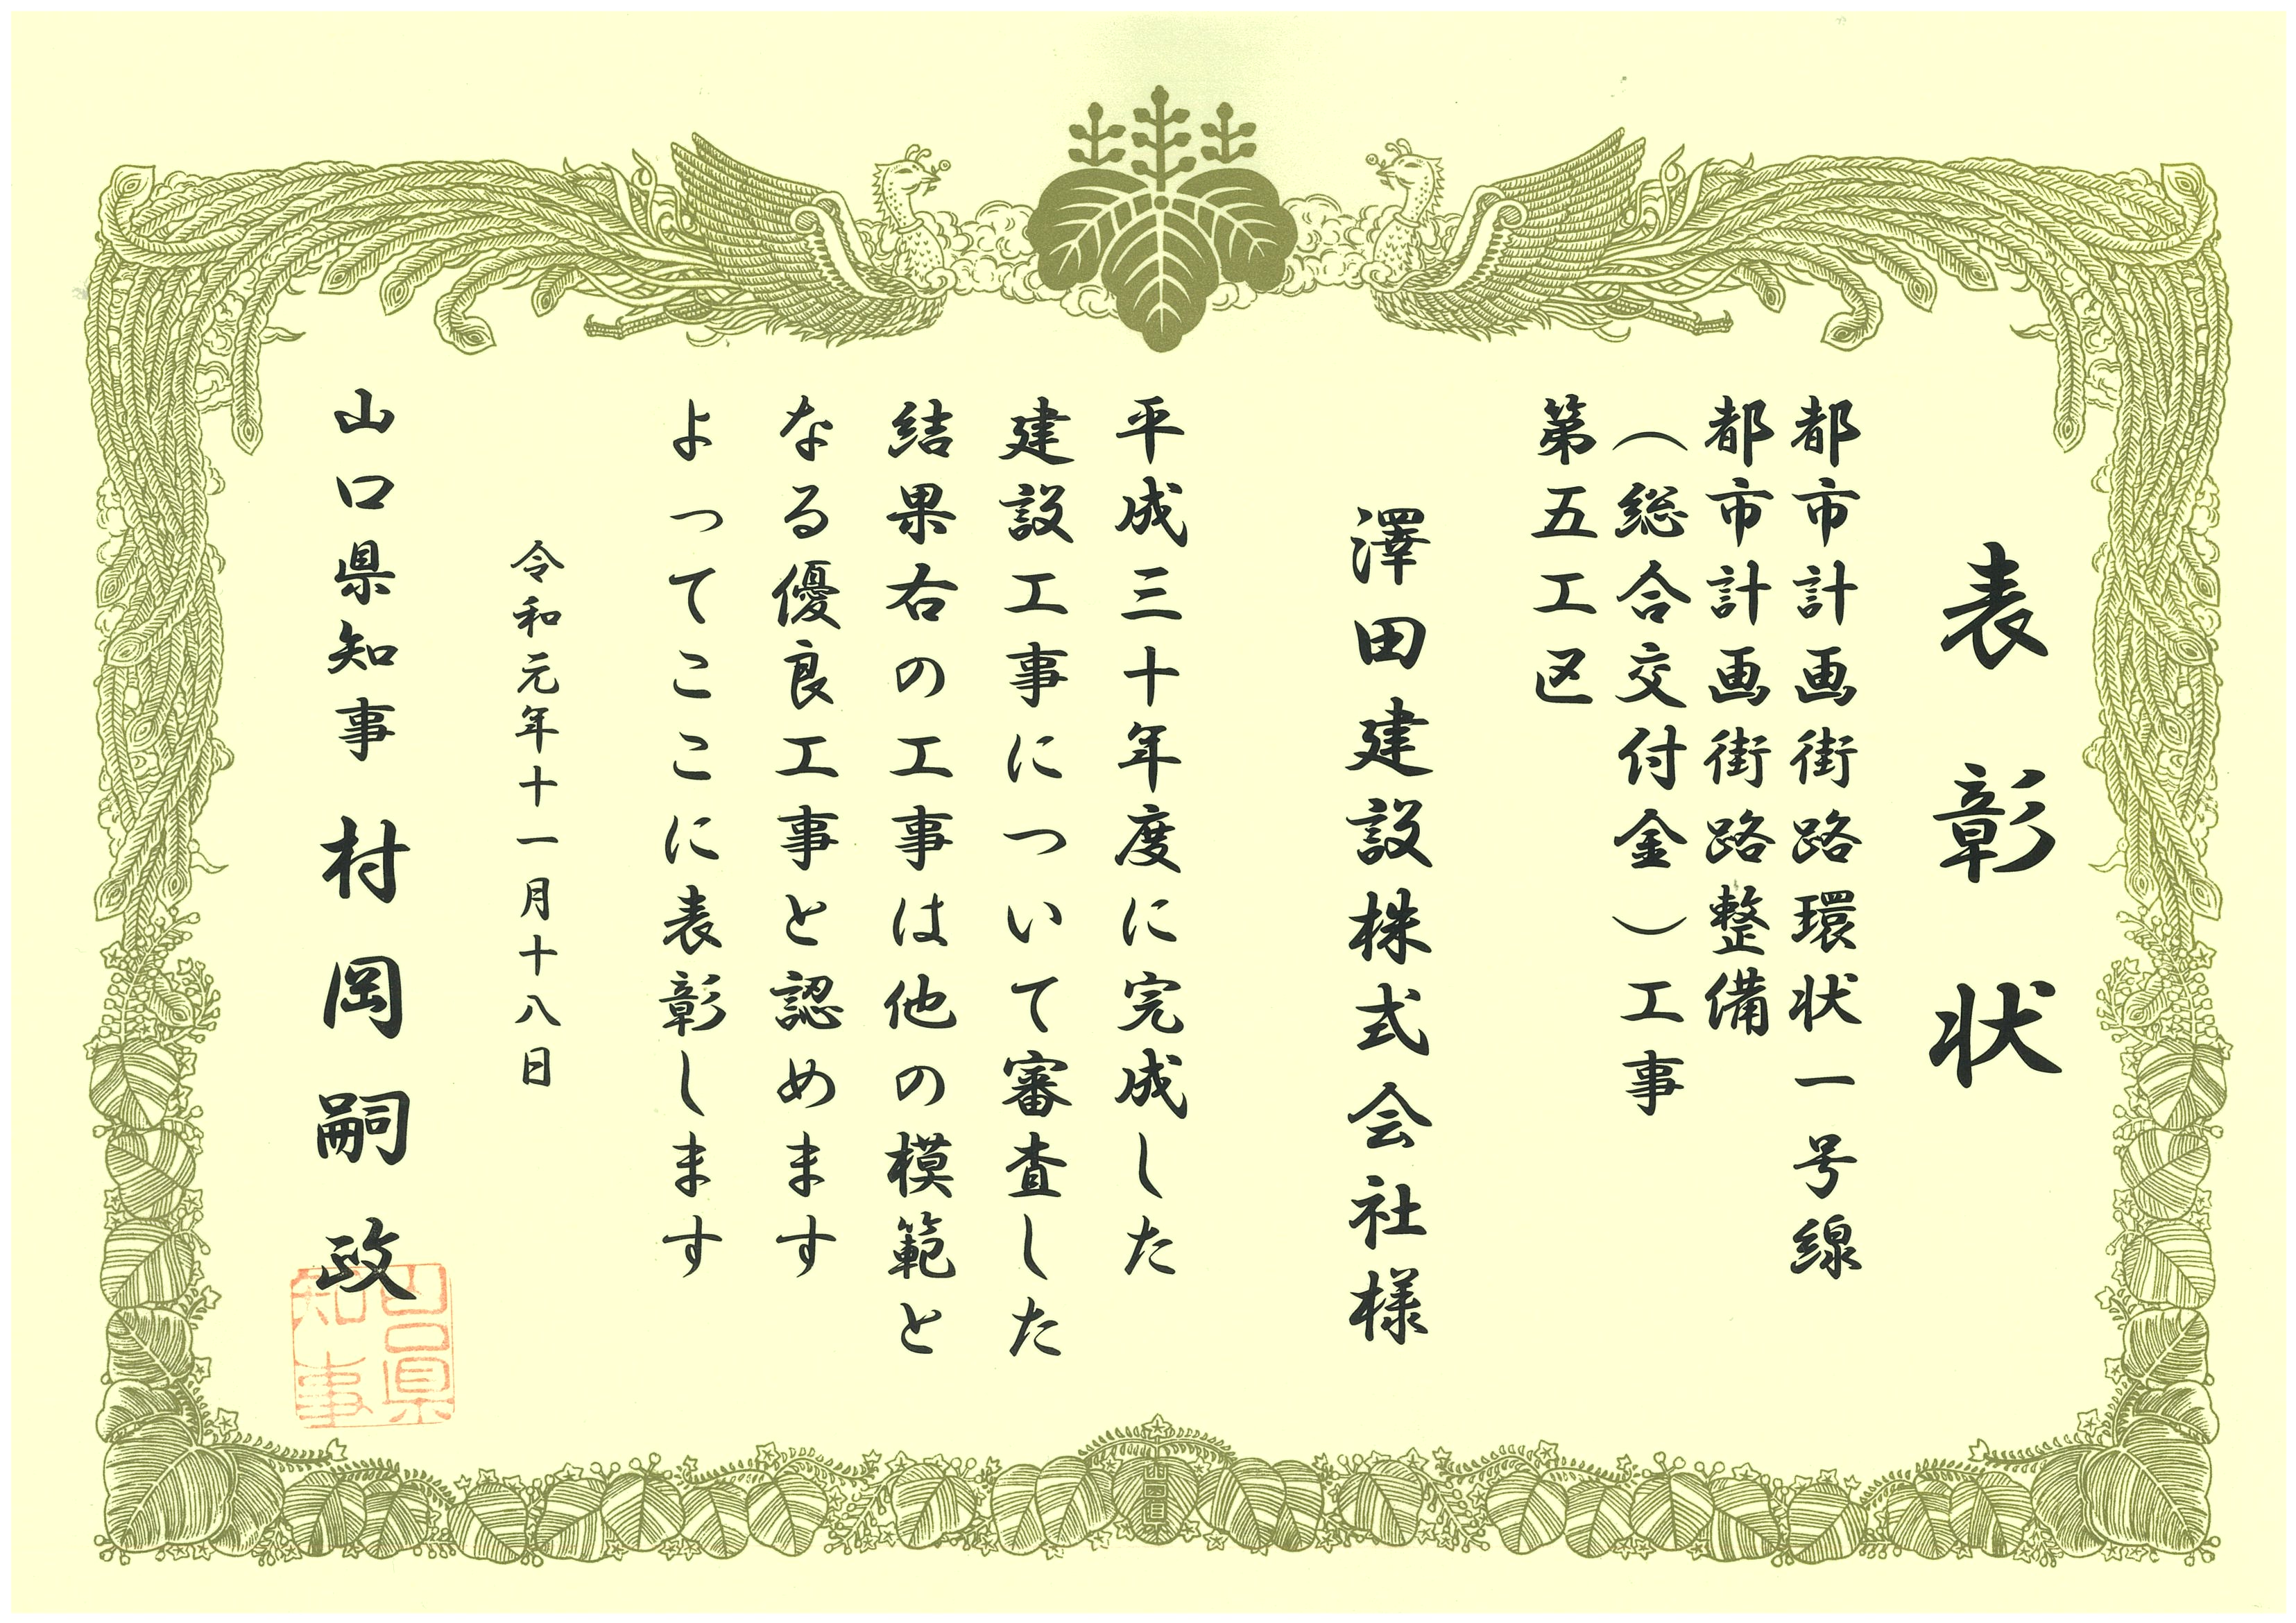 表彰状
都市計画街路環状一号線
都市計画街路整備
（総合交付金）工事
第五工区
澤田建設株式会社様
平成三十年度に完成した
建設工事について審査した
結果右の工事は他の模範と
なる優良工事と認めます
よってここに表彰します
令和元年十一月十八日
山口県知事 村岡嗣政
山口県
知事
山口県